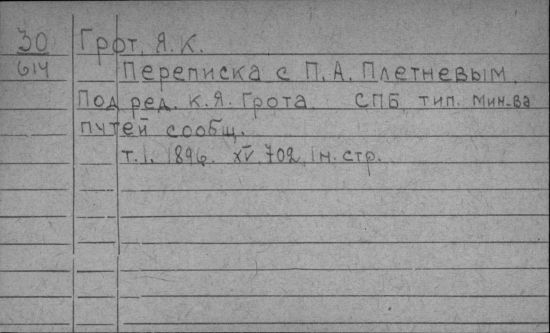 30 Грот, Я.К.
614 Переписка с П.А. Плетневым.
Под ред. К.Я. Грота. СПБ, тип. Мин-ва
путей сообщ.
т.1. 1896. XV, 702, 1 н. стр.